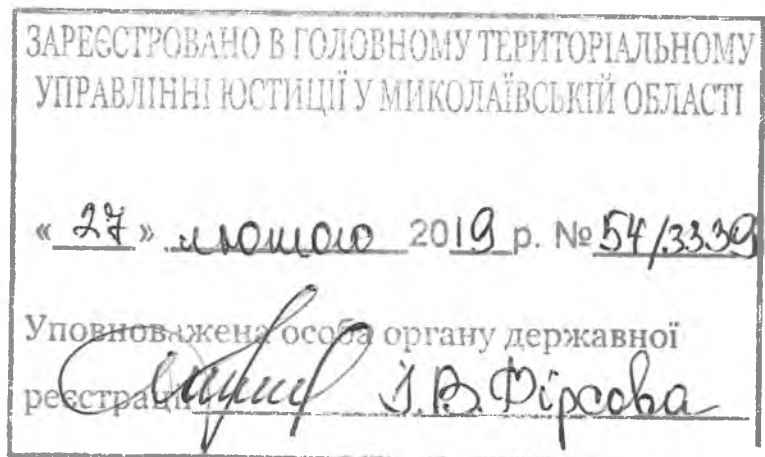 ЗАРЕЄСТРОВАНО В ГОЛОВНОМУ ТЕРИТОРІАЛЬНОМУ
УПРАВЛІННІ ЮСТИЦІЇ У МИКОЛАЇВСЬКІЙ ОБЛАСТІ
« 27 » лютого 2019 р. № 54/3339
Уповноважена особа органу державної
реєстрації І.В. Фірсова